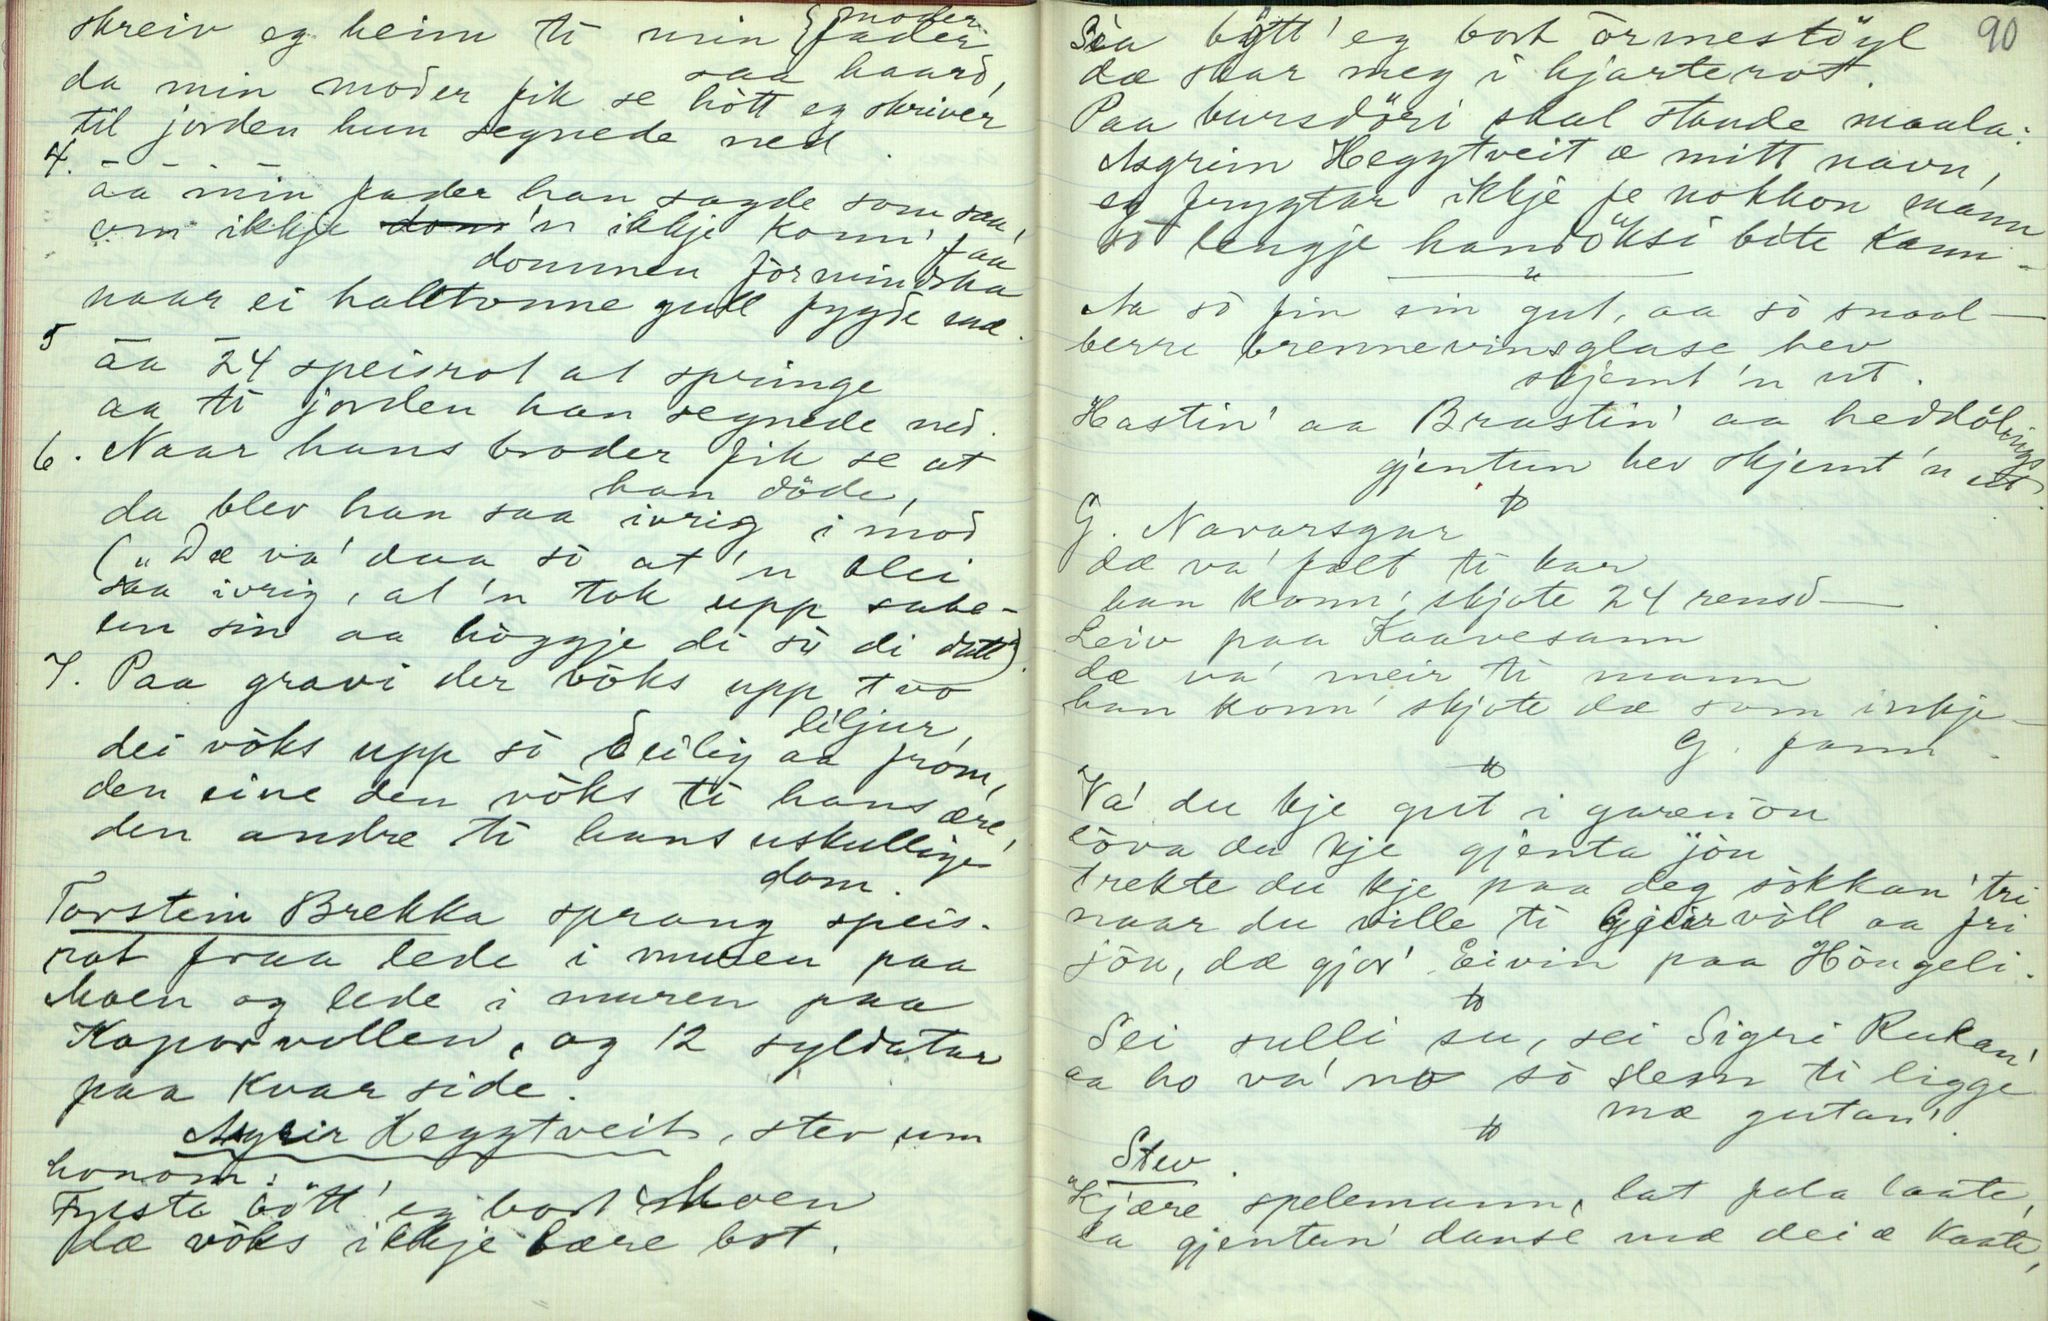 skreiv eg heim ti min { moder
fader
da min moder fik se hòtt eg skriver
saa haard,
til jorden hun segnede ned.
4. aa min fader han sagde som saa,
om ikkje 'n ikkje konn' faa
dommen forminska
naar ei halltonne gull fygde mæ.
5 aa 24 speisrot at springe
aa ti jorden han segnede ned.
6. Naar hans broder fik se at
han döde,
da blev han saa ivrig i mod
("Dæ va' daa sò at 'n blei
saa ivrig, at 'n tok upp sabe-
len sin aa höggje di sò di datt)
7. Paa gravi der vòks upp tvo
liljur,
dei vòks upp sò deilig aa from,
den eine den vòks ti hans ære,
den andre ti hans uskullige
dom.
Torstein Brekka sprang speis-
rot fraa lede i muren paa
Moen og lede i muren paa
Kaporvollen, og 12 syldatar
paa kvar side.
Asgrim Heggtveit, stev um
honom:
Fysste bött' eg bort Moen
dæ vòks ikkje bære bot.
90
Sia bött' eg bort òrmestöyl
dæ skar meg i hjarterot.
Paa bursdöri skal stande maala:
Asgrim Heggtveit æ mitt navn,
eg frygtar ikkje fe nokkon mann
sò lengje handöksi bite kann.
"
Aa sò fin ein gut, aa sò snaal –
berre brennevinsglase hev
skjemt 'n ut.
Hastin' aa Brastin' aa heddölings
gjentun hev skjemt 'n ut.
G. Navarsgar
dæ va' falt ti kar
han konn' skjote 24 rensd –
Leiv paa Kaavesann
dæ va' meir ti mann
han konn' skjote dæ som inkje –
G. fann.
Va' du kje gut i garen òn
lòva du kje gjenta jòn
trekte du kje paa deg sòkkan' tri
naar du ville ti Geirvòll aa fri
jòu, dæ gjor' Eivin paa Höugeli.
Sei sulli su, sei Sigri Rukan'
aa ho va' no sò slem ti ligge
mæ gutan'.
Stev.
"Kjære spelemann, lat fela laate,
la gjentun' danse mæ dei æ kaate,